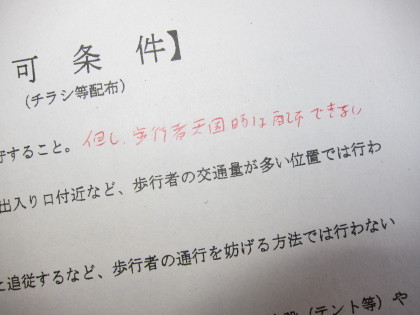 可条件】
(チラシ等配布)
守すること。 但し、歩行者天国時は配布できない
出入り口付近など、歩行者の交通量が多い位置では行わ
と追従するなど、歩行者の通行を妨げる方法では行わない
(テント等)や